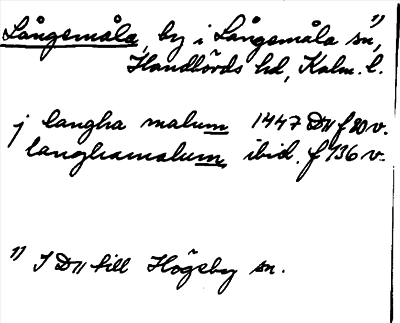 Långemåla, by i Långemåla sn, 1)
Handbörds hd, Kalm. l.
j langha malum 1447 D11 f 80 v.
langhamalum ibid. f 136 v.
1) I D11 till Högsby sn.